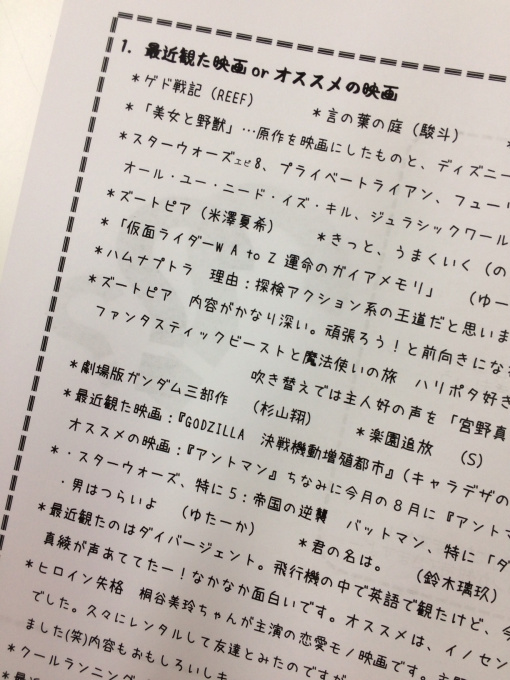 1. 最近観た映画 or オススメの映画
*ゲド戦記（REEF） *言の葉の庭（駿斗） *
*「美女と野獣」…原作を映画にしたものと、ディズニー
*スターウォーズエピ8、プライベートライアン、フューリ
オール・ユー・ニード・イズ・キル、ジュラシックワール
*ズートピア（米澤夏希） *きっと、うまくいく（の
*「仮面ライダーW A to Z 運命のガイアメモリ」 （ゆー
*ハムナプトラ 理由：探検アクション系の王道だと思いま
*ズートピア 内容がかなり深い。頑張ろう！と前向きにな
ファンタスティックビーストと魔法使いの旅 ハリポタ好き
吹き替えでは主人好の声を「宮野真
*劇場版ガンダム三部作 （杉山翔） *楽園追放 （S）
*最近観た映画：『GODZILLA 決戦機動増殖都市』（キャラデザの
オススメの映画：『アントマン』ちなみに今月の8月に『アントマ
*・スターウォーズ、特に5：帝国の逆襲 バットマン、特に「ダ
・男はつらいよ （ゆたーか） *君の名は。 （鈴木璃玖）
*最近観たのはダイバージェント。飛行機の中で英語で観たけど、今
真綾が声あててたー！なかなか面白いです。オススメは、イノセン
*ヒロイン失格 桐谷美玲ちゃんが主演の恋愛モノ映画です。主題
でした。久々にレンタルして友達とみたのですが
ました(笑)内容もおもしろいし
*クールランニング
*最近